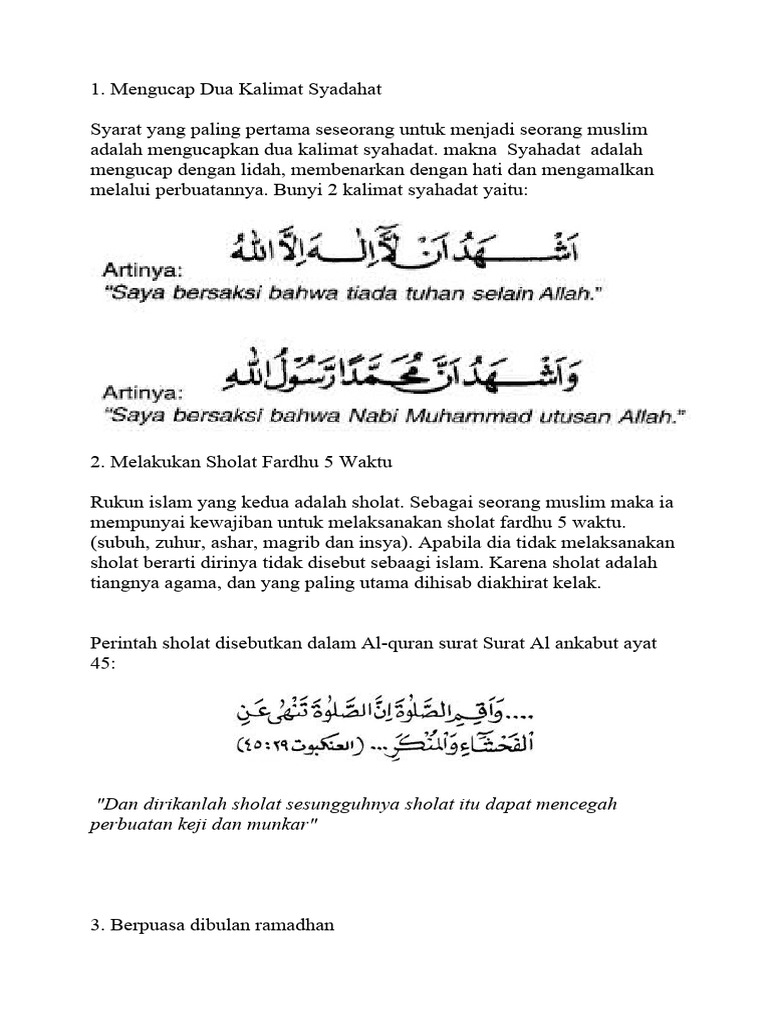 1. Mengucap Dua Kalimat Syadahat
Syarat yang paling pertama seseorang untuk menjadi seorang muslim
adalah mengucapkan dua kalimat syahadat. makna  Syahadat  adalah
mengucap dengan lidah, membenarkan dengan hati dan mengamalkan
melalui perbuatannya. Bunyi 2 kalimat syahadat yaitu:
اَشْهَدُ اَنْ لَآ اِلٰـهَ اِلَّا اللهُ
Artinya:
"Saya bersaksi bahwa tiada tuhan selain Allah."
وَاَشْهَدُ اَنَّ مُحَمَّدًا رَّسُوْلُ اللهِ
Artinya:
"Saya bersaksi bahwa Nabi Muhammad utusan Allah."
2. Melakukan Sholat Fardhu 5 Waktu
Rukun islam yang kedua adalah sholat. Sebagai seorang muslim maka ia
mempunyai kewajiban untuk melaksanakan sholat fardhu 5 waktu.
(subuh, zuhur, ashar, magrib dan insya). Apabila dia tidak melaksanakan
sholat berarti dirinya tidak disebut sebaagi islam. Karena sholat adalah
tiangnya agama, dan yang paling utama dihisab diakhirat kelak.
Perintah sholat disebutkan dalam Al-quran surat Surat Al ankabut ayat
45:
....وَاَقِمِ الصَّلٰوةَ اِنَّ الصَّلٰوةَ تَنْهٰى عَنِ
الْفَحْشَآءِ وَالْمُنْكَرِ ... (العنكبوت ٢٩:٤٥)
"Dan dirikanlah sholat sesungguhnya sholat itu dapat mencegah
perbuatan keji dan munkar"
3. Berpuasa dibulan ramadhan